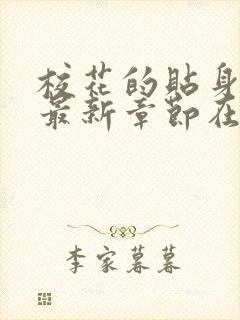 校花的贴身
最新章节在
李家暮暮